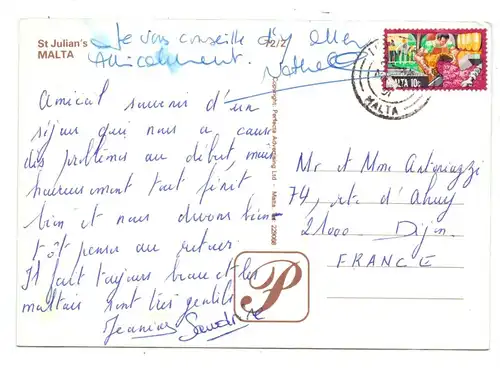 St Julian's
MALTA
Je vous conseille d'y aller
Amicalement.
Amical souvenir d'un
séjour qui nous a causé
des problèmes au début, mais
heureusement tout finit
bien et nous devons bien-
tôt penser au retour.
Il fait toujours beau et les
maltais sont très gentils
Copyright: Perfecta Advertising Ltd - Malta.
P
MALTA 10c
MALTA
Mr et Mme Antoniazzi
74, rte d'Ahuy
21000 Dijon
FRANCE